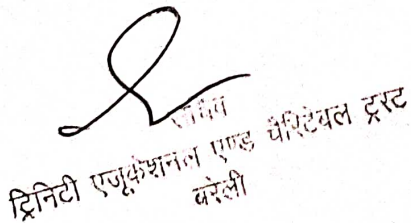 सचिव
ट्रिनिटी एजूकेशनल एण्ड चैरिटेबल ट्रस्ट
बरेली